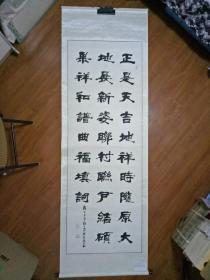 正是天吉地祥時隨原大
地長新姿聯村聯戶結碩
果祥和譜曲福填詞